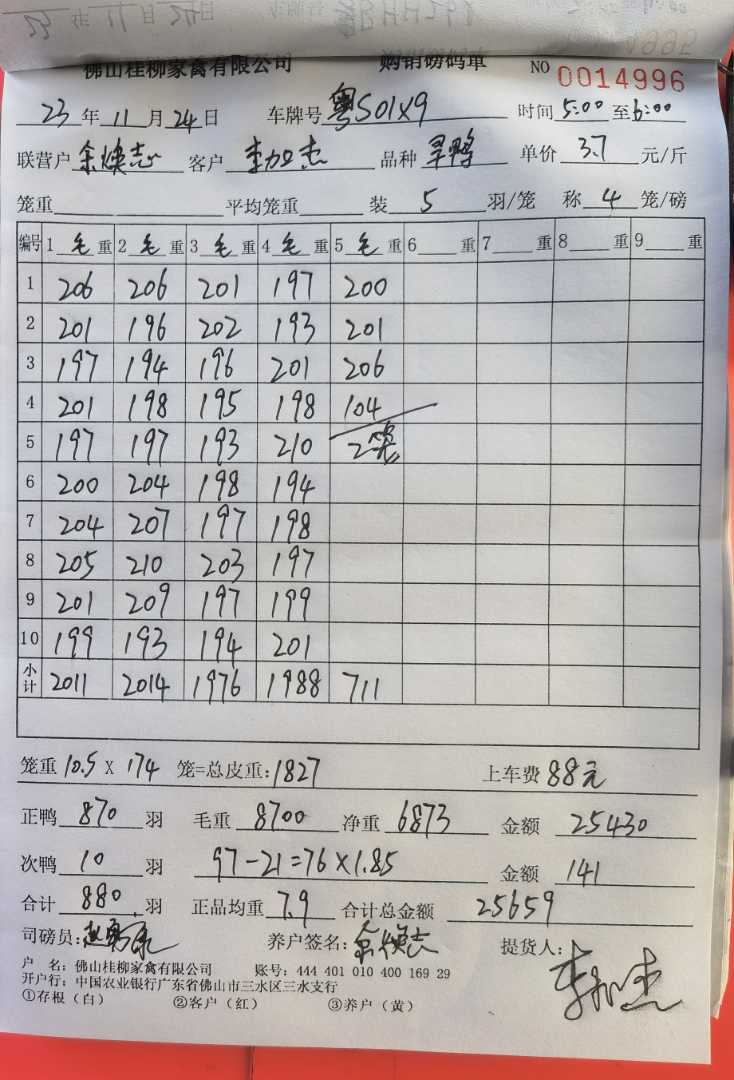 佛山桂柳家禽有限公司 购销磅码单 NO 0014996
23年11月24日 车牌号 粤S01X9 时间5:00至6:00
联营户 余焕志 客户 李加杰 品种 旱鸭 单价 3.7 元/斤
笼重 平均笼重 装 5 羽/笼 称 4 笼/磅
编号 1 毛 重 2 毛 重 3 毛 重 4 毛 重 5 毛 重 6 重 7 重 8 重 9 重
1 206 206 201 197 200
2 201 196 202 193 201
3 197 194 196 201 206
4 201 198 195 198 104
5 197 197 193 210 2笼
6 200 204 198 194
7 204 207 197 198
8 205 210 203 197
9 201 209 197 199
10 199 193 194 201
小计 2011 2014 1976 1988 711
笼重 10.5 X 174 笼=总皮重:1827 上车费 88元
正鸭 870 羽 毛重 8700 净重 6873 金额 25430
次鸭 10 羽 97-21=76×1.85 金额 141
合计 880 羽 正品均重 7.9 合计总金额 25659
司磅员: 养户签名:余焕志 提货人:李加杰
户 名:佛山桂柳家禽有限公司 账号:444 401 010 400 169 29
开户行:中国农业银行广东省佛山市三水区三水支行
①存根(白) ②客户(红) ③养户(黄)